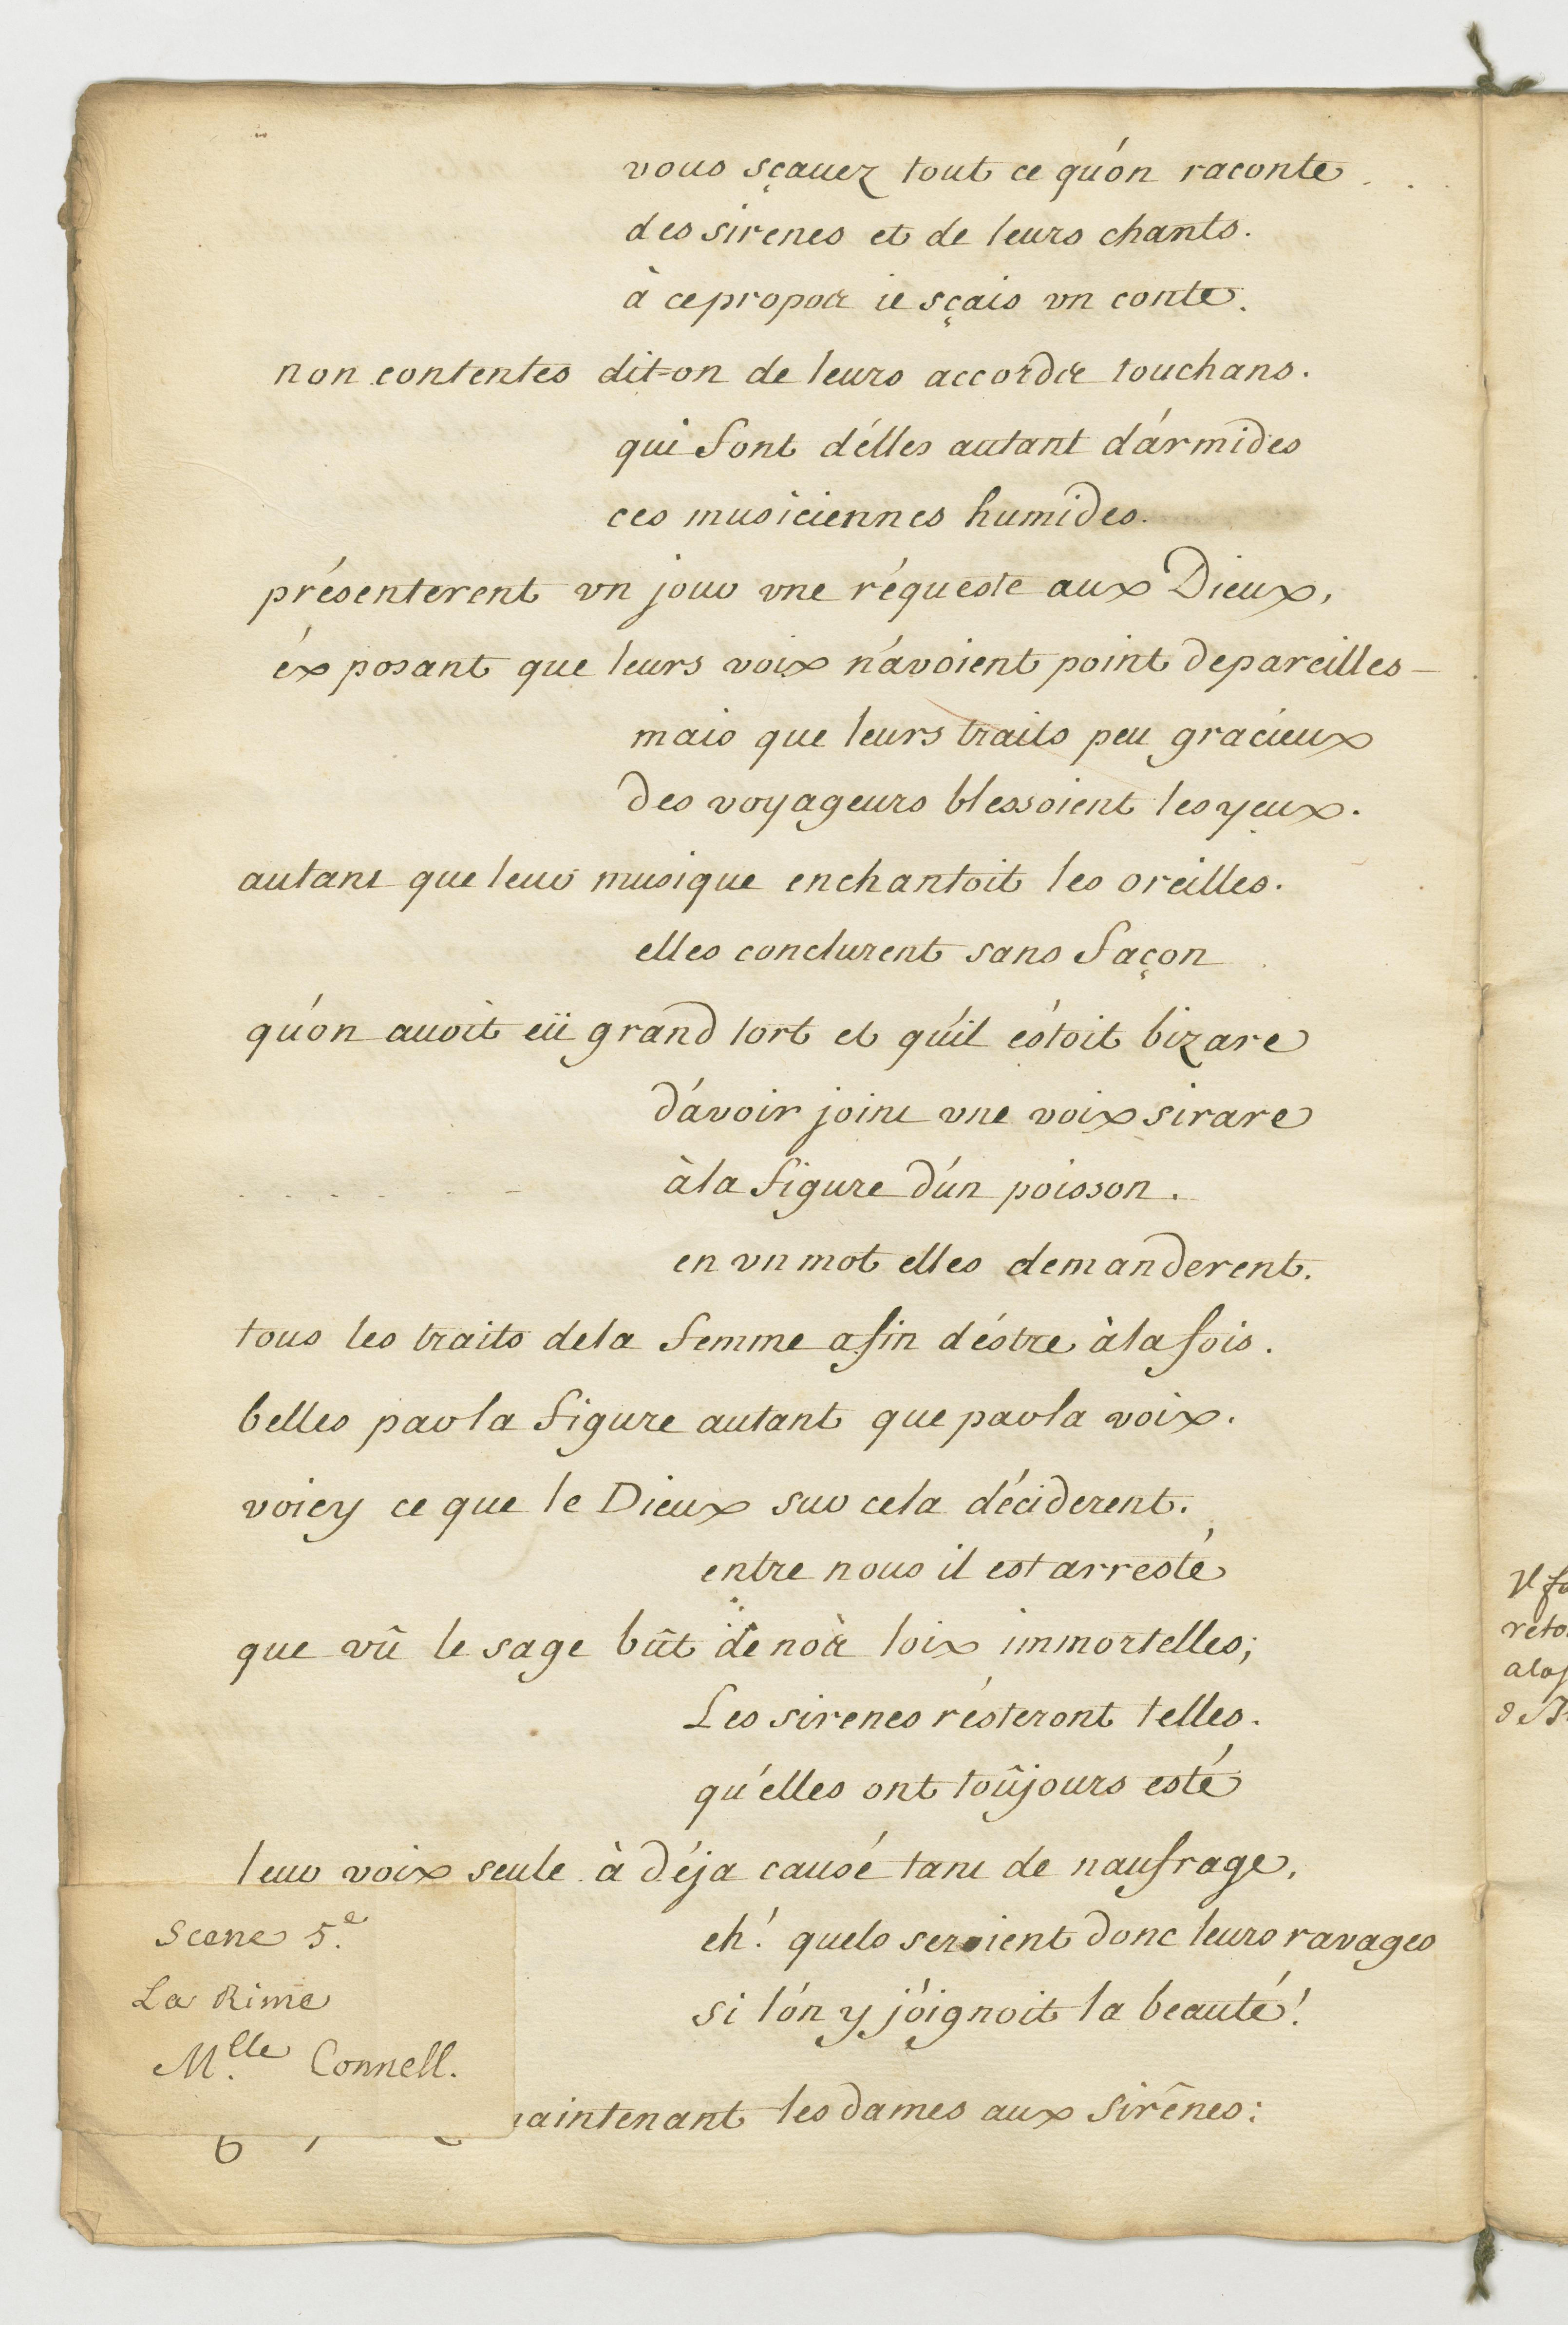 vous sçauez tout ce qu'on raconte
des sirenes et de leurs chants.
à ce propos ie sçais vn conte.
non contentes dit-on de leurs accords touchans.
qui font d'élles autant d'ármides
ces musiciennes humides.
présenterent vn jour vne réqueste aux Dieux,
éxposant que leurs voix n'avoient point de pareilles
mais que leurs traits peu gracieux
des voyageurs blessoient les yeux.
autant que leur musique enchantoit les oreilles.
elles conclurent sans façon
qu'on auoit eü grand tort et qu'il éstoit bizare
d'avoir joint vne voix si rare
à la figure d'un poisson.
en vn mot elles demanderent.
tous les traits de la femme afin d'éstre à la fois.
belles par la figure autant que par la voix.
voicy ce que le Dieux sur cela déciderent.
entre nous il est arresté
que vû le sage bût de nos loix immortelles;
Les sirenes résteront telles.
qu'elles ont toûjours esté
leur voix seule à déja causé tant de naufrage,
eh! quels seroient donc leurs ravages
si l'on y jóignoit la beauté!
aintenant les dames aux sirênes:
Scene 5.e
La Rime
M.lle Connell.